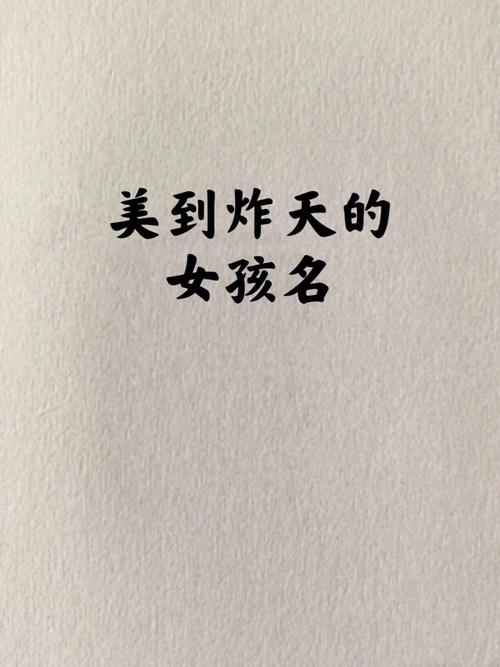 美到炸天的
女孩名